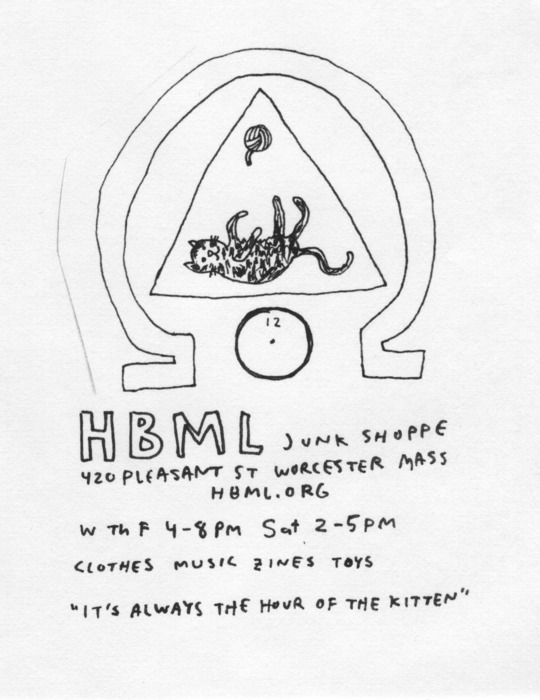 12
HBML JUNK SHOPPE
420 PLEASANT ST WORCESTER MASS
HBML.ORG
W Th F 4-8PM Sat 2-5PM
CLOTHES MUSIC ZINES TOYS
"IT'S ALWAYS THE HOUR OF THE KITTEN"